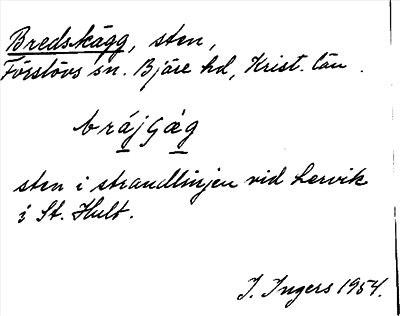 Bredskägg, sten,
Förslövs sn. Bjäre hd, Krist. län.
brájʃǽg
sten i strandlinjen vid Lervik
i St. Hult.
I. Ingers 1954.